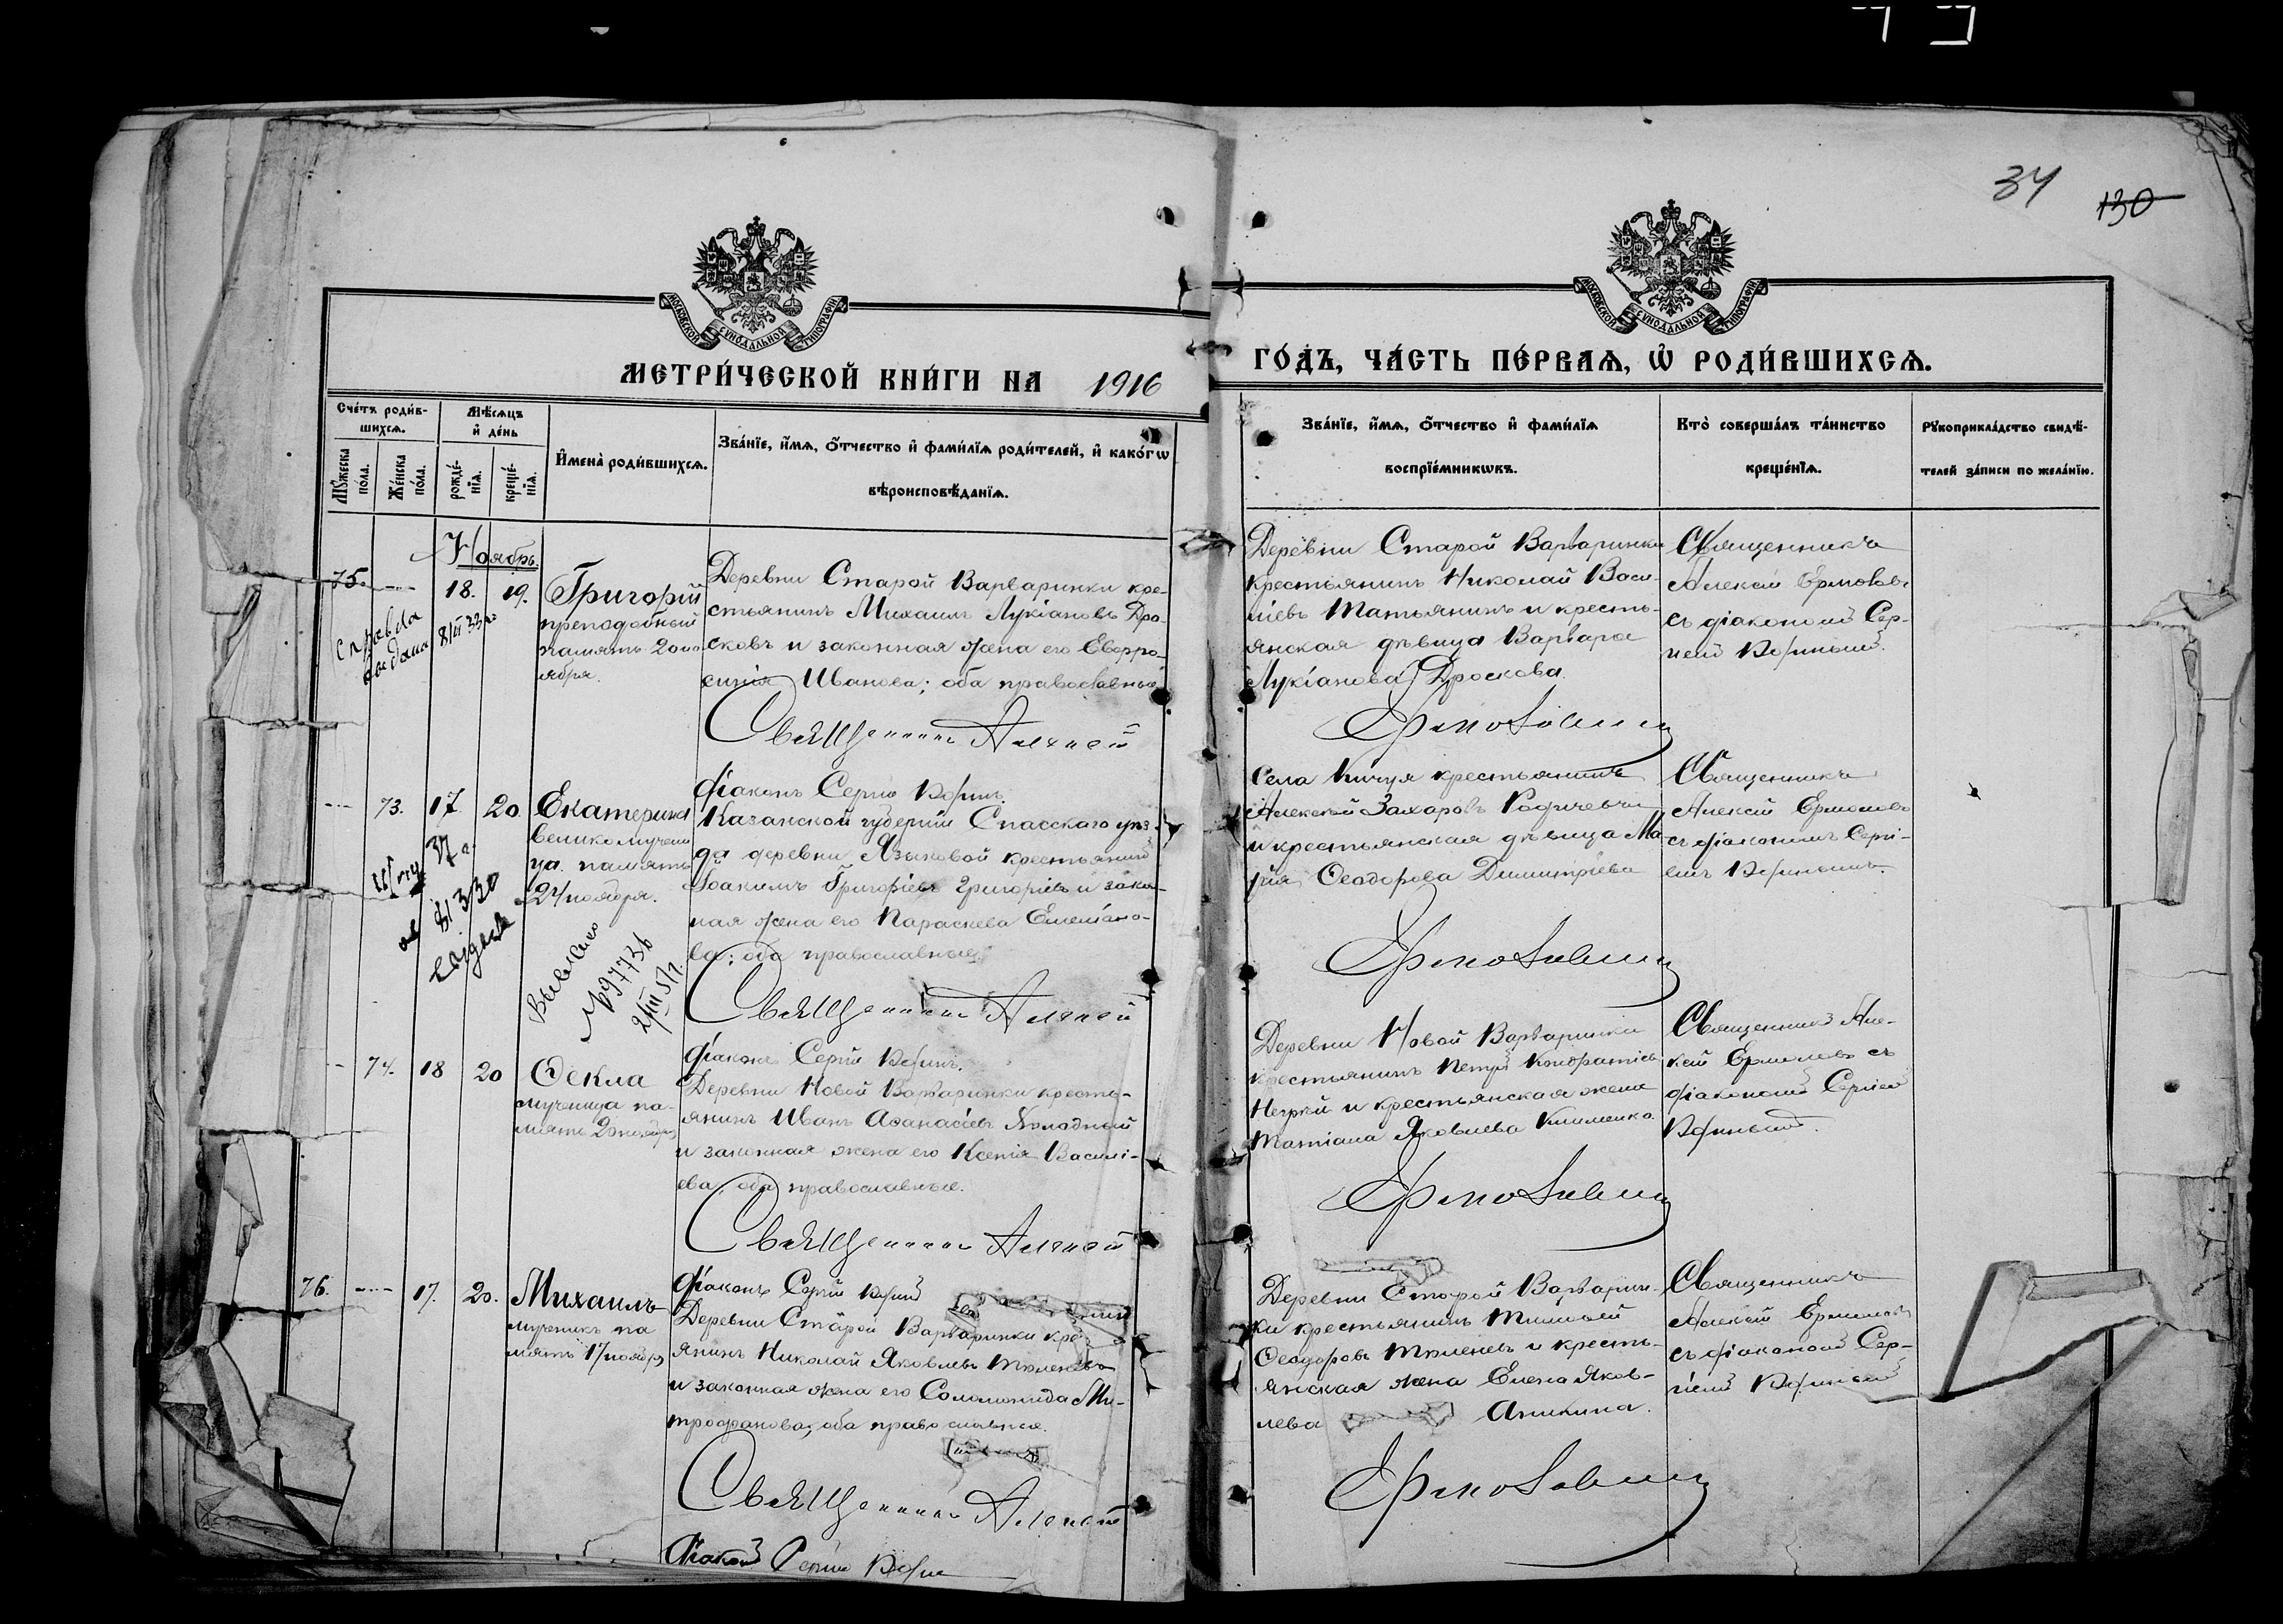 34
130
МОСКОВСКОЙ СѴНОДАЛЬНОЙ ТИПОГРАФІИ
МОСКОВСКОЙ СѴНОДАЛЬНОЙ ТИПОГРАФІИ
МЕТРИ́ЧЕСКОЙ КНИ́ГИ НА 1916
ГО́ДЪ, ЧА́СТЬ ПЕ́РВАѦ, Ѽ РОДИ́ВШИХСѦ.
Сче́тъ роди́в-
шихсѧ.
Мꙋ́жеска
по́ла.
Же́нска
по́ла.
Мѣ́сѧцъ
и҆ де́нь
рожде́-
нїѧ.
креще́-
нїѧ.
И҆мена̀ роди́вшихсѧ.
Зва́нїе, и҆́мѧ, ѻ҆́тчество и҆ фами́лїѧ роди́телей, и҆ како́гѡ
вѣроисповѣ́данїѧ.
Зва́нїе, и҆́мѧ, ѻ҆́тчество и҆ фами́лїѧ
воспрїе́мникѡвъ.
Кто̀ соверша́лъ та́инство
креще́нїѧ.
Рꙋкоприкла́дство свидѣ́-
телей за́писи по жела́нїю.
Ноябрь
75. 18. 19.
Григорій
преподобный
память 20 но
ября.
Деревни Старой Варваринки кре-
стьянинъ Михаилъ Лукіановъ Дро-
сковъ и законная жена его Евфро-
синія Иванова; оба православные
Священникъ Алексей
Діаконъ Сергій
Деревни Старой Варваринки
крестьянинъ Николай Васи-
ліевъ Татьянинъ и кресть-
янская дѣвица Варвара
Лукіанова Дроскова.
Ермолаевъ
Священникъ
Алексій
съ діакономъ Сер-
гіемъ
Справка
выдана
73. 17 20
Екатерина
великомучени
ца память
24 ноября.
Казанской губерніи Спасскаго уѣз-
да деревни Языковой крестьянинъ
Іоакимъ Григоріевъ Григорьевъ и закон-
ная жена его Параскева Емеліано-
ва; оба православные
Священникъ Алексей
Діаконъ Сергій
Села Кичуя крестьянинъ
Алексѣй Захаровъ
и крестьянская дѣвица Ма-
рія Ѳеодорова Димитріева
Священникъ
Алексій
съ діакономъ Сергі-
емъ
74. 18 20
Ѳекла
мученица па-
мять 20 ноября
Деревни Новой Варваринки кресть-
янинъ Иванъ Аѳанасіевъ Холодный
и законная жена его Ксенія Василі-
ева, оба православные.
Священникъ Алексей
Діаконъ Сергій
Деревни Новой Варваринки
крестьянинъ Петръ Кондратіевъ
и крестьянская жена
Татіана Яковлева Клименко
Священникъ Але-
ксѣй съ
діакономъ Сергіемъ
76. 17. 20.
Михаилъ
мученикъ па
мять 17 ноября
Деревни Старой Варваринки кре
янинъ Николай Яковлевъ Тюленевъ
и законная жена его Соломонида Ми-
трофанова; оба православные.
Священникъ Алексей
Діаконъ Сергій
Деревни Старой Варварин-
ки крестьянинъ Тимофей
Ѳеодоровъ Тюленевъ и кресть-
янская жена Елена Яков-
лева Аникина.
Священникъ
Алексѣй
съ діакономъ Сер-
гіемъ